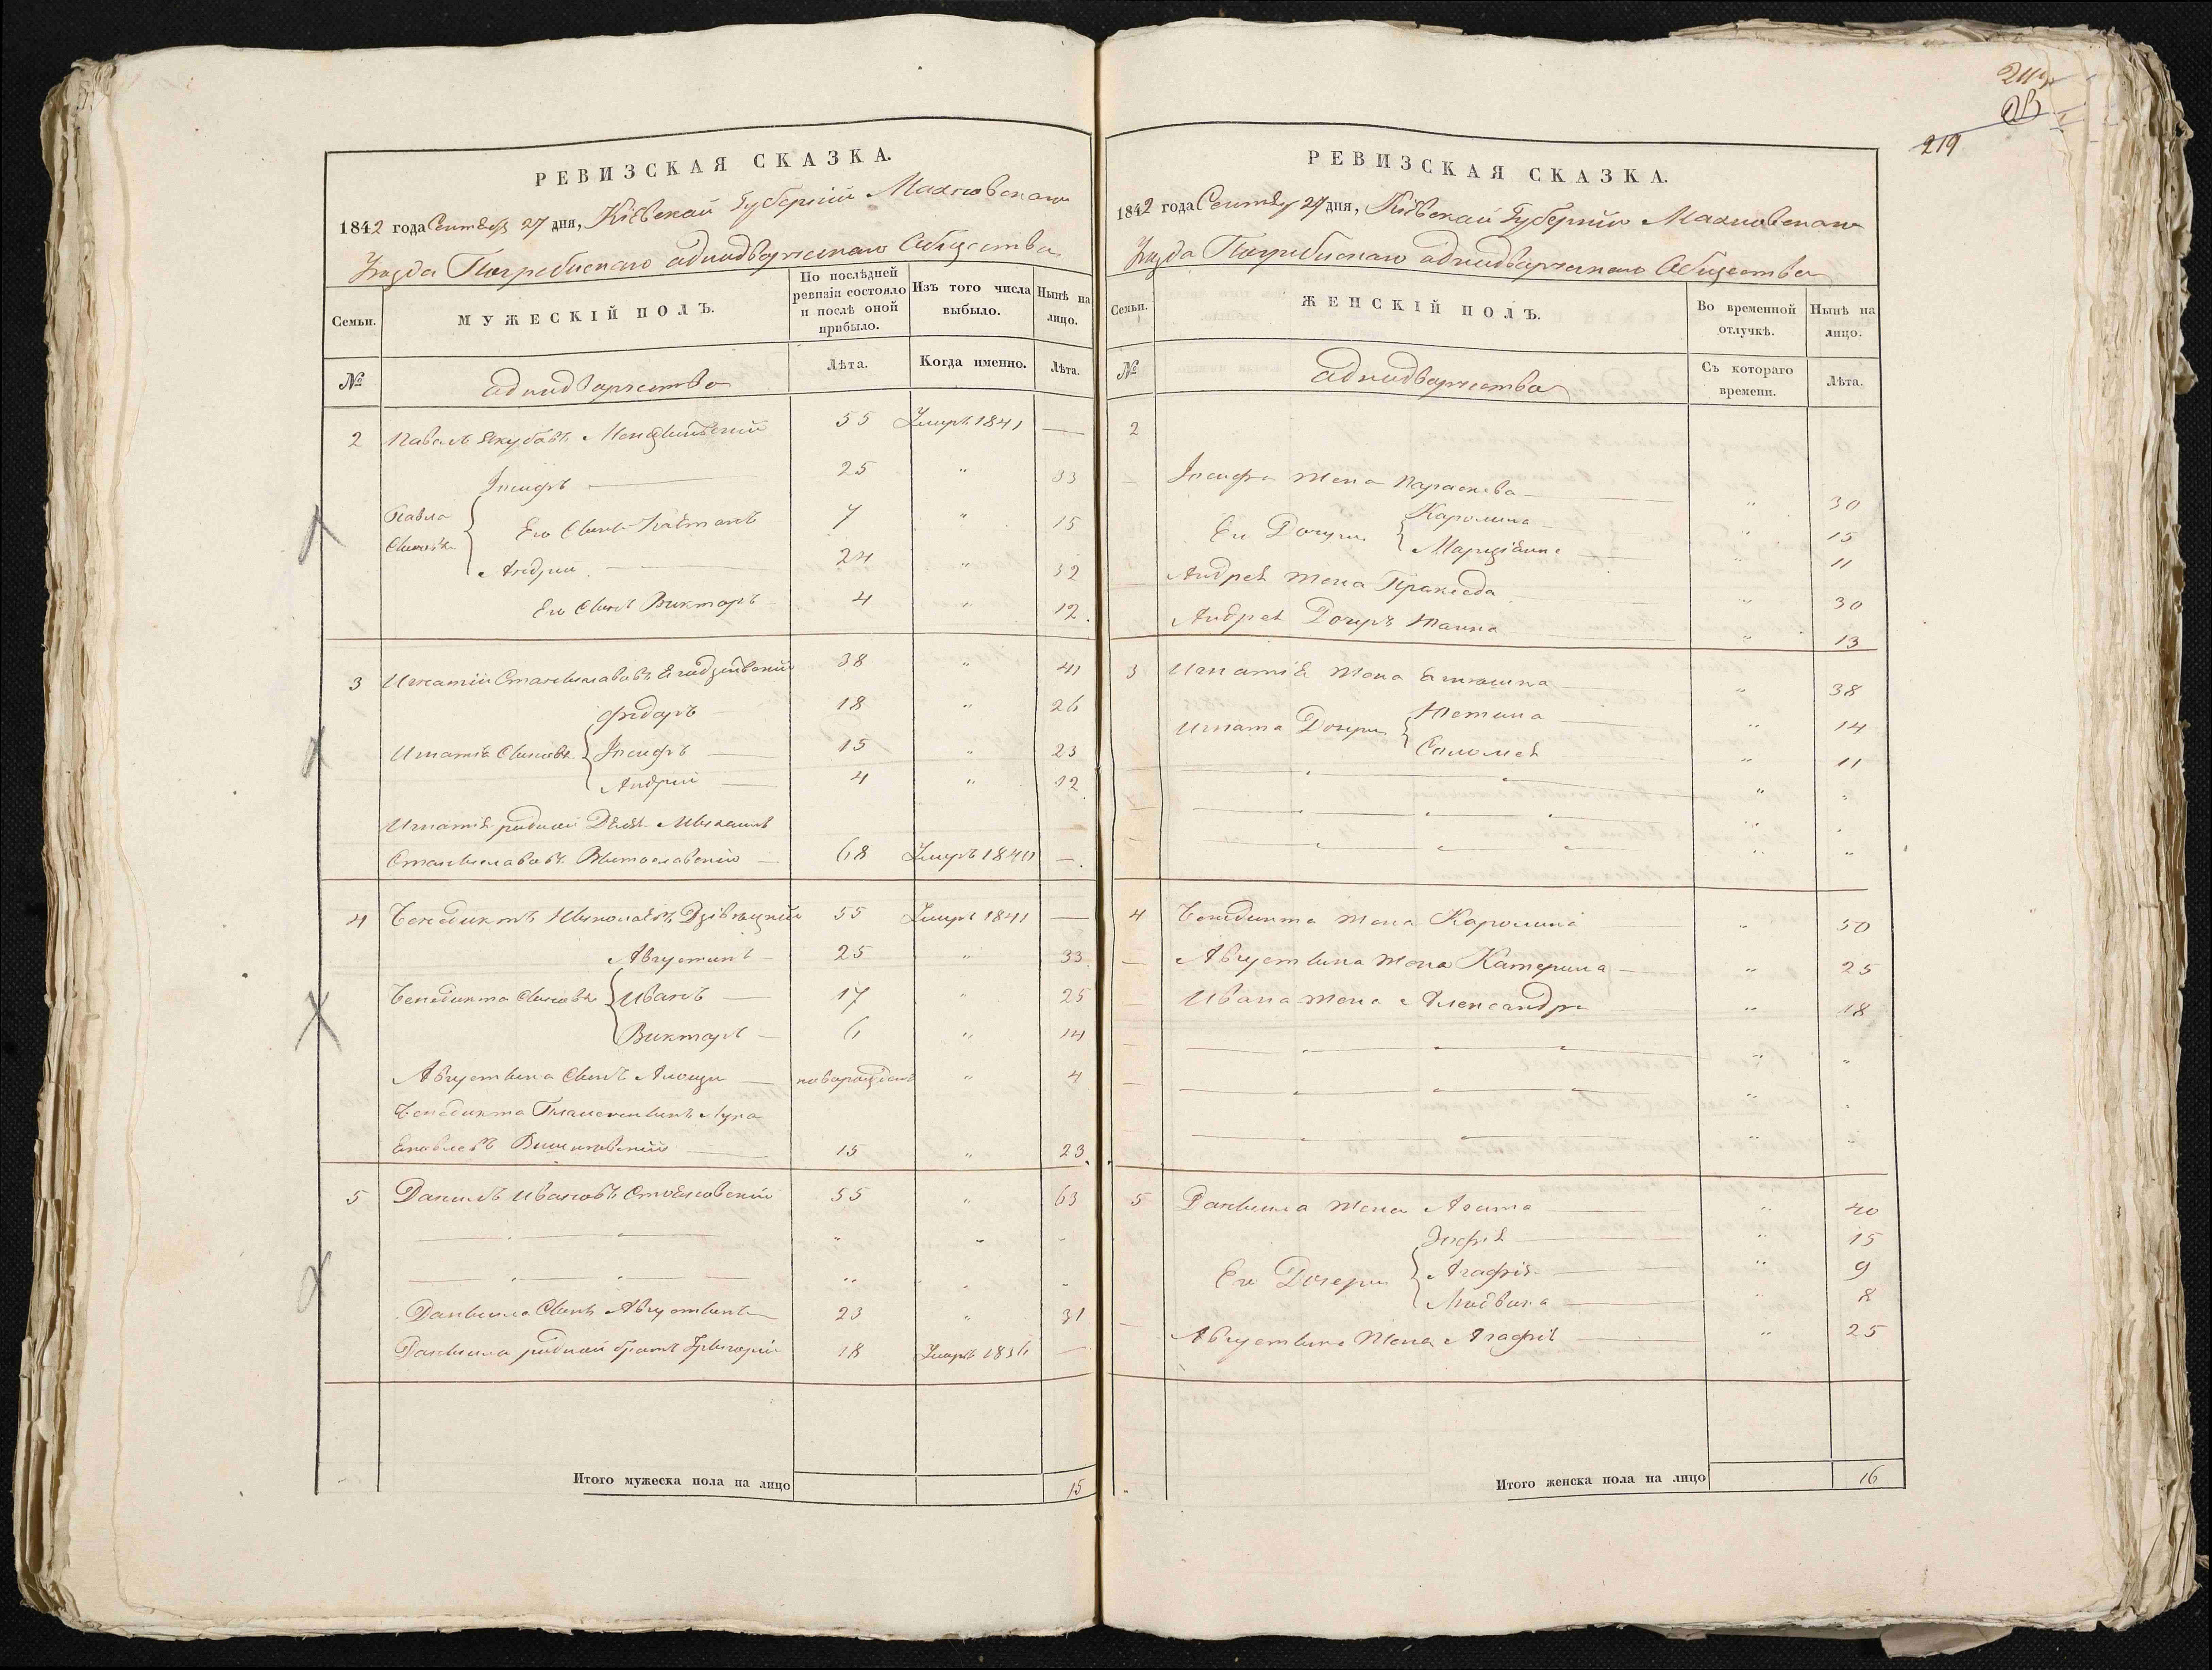 219
РЕВИЗСКАЯ СКАЗКА.
1842 года Сентября 27 дня, Кіевской Губерніи Махновскаго
Уезда Погребискаго однодворческаго Общества
Семьи.
МУЖЕСКІЙ ПОЛЪ.
По послѣдней ревизіи состояло и послѣ оной прибыло.
Изъ того числа выбыло.
Нынѣ на лицо.
№
однодворчество
Лѣта.
Когда именно.
Лѣта.
2 Павелъ Якубовъ 55 Умеръ 1841 —
Іосифъ — 25 " 33
Павла Сыновья
Его Сынъ Каетанъ 7 " 15
Андрей — 24 " 32
Его Сынъ Викторъ 4 " 12
3 Игнатій Станиславовъ 38 " 41
Фёдоръ 18 " 26
Игнатія Сыновья Іосифъ — 15 " 23
Андрей — 4 " 12
Игнатія родной Дядя Михаилъ
Станиславовъ Витославскій — 68 Умеръ 1840 —
4 Бенедиктъ Николаевъ 55 Умеръ 1841 —
Августинъ — 25 " 33
Бенедикта Сыновья Иванъ — 17 " 25
Викторъ — 6 " 14
Августина Сынъ — новорожденъ " 4
Бенедикта Племянникъ Лука
15 " 23
5 Данилъ Ивановъ Стояновскій 55 " 63
Данила Сынъ Августинъ 23 " 31
Данила родной братъ Григорій 18 Умеръ 1836 —
Итого мужеска пола на лицо 15
РЕВИЗСКАЯ СКАЗКА.
1842 года Сентября 27 дня, Кіевской Губерніи Махновскаго
Уезда Погребискаго однодворческаго Общества
Семьи.
ЖЕНСКІЙ ПОЛЪ.
Во временной отлучкѣ.
Нынѣ на лицо.
№
однодворчество
Съ котораго времени.
Лѣта.
2
Іосифа жена Параскева — " 30
Его Дочери Каролина — " 15
— " 11
Андрея жена Пракседа " 30
Андрея Дочерь Іоанна " 13
3 Игнатія жена " 38
Игната Дочери Юстина " 14
Саломея " 11
4 Бенедикта жена Каролина " 50
Августина жена Катерина — " 25
Ивана жена Александра " 18
5 Данила жена Агата " 40
Зофія " 15
Его Дочери Агафія — " 9
Людвика — " 8
Августина жена Агафія — " 25
Итого женска пола на лицо 16